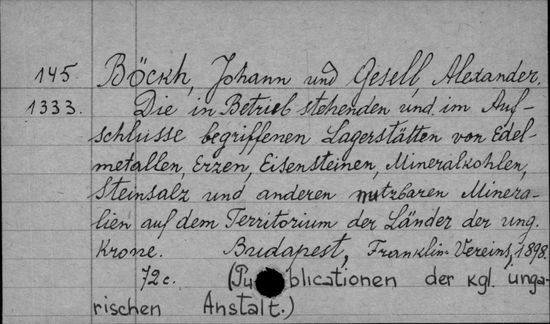 145. Böckh, Johann und Gesell, Alexander.
1333. Die in Betrieb stehenden und im Auf-
schlusse begriffenen Lagerstätten von Edel-
metallen, Erzen, Eisensteinen, Mineralkohlen,
Steinsalz und anderen nutzbaren Minera-
lien auf dem Territorium der Länder der ung.
Krone. Budapest, Franklin-Vereins, 1898.
72 c. (Publicationen der kgl. unga-
rischen Anstalt.)